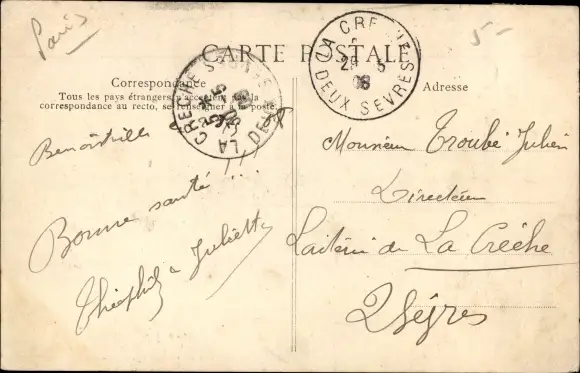 Paris
5-
CARTE POSTALE
Correspondance
Tous les pays étrangers n'acceptent pas la
correspondance au recto, se renseigner à la poste.
Bonne santé !!!
Théophile Juliette
LA CRECHE
28 5
08
DEUX SEVRES
LA CRECHE
DEUX SEVRES
Adresse
Monsieur Troubé Julien
Directeur
Laiterie de La Crèche
2 Sèvres